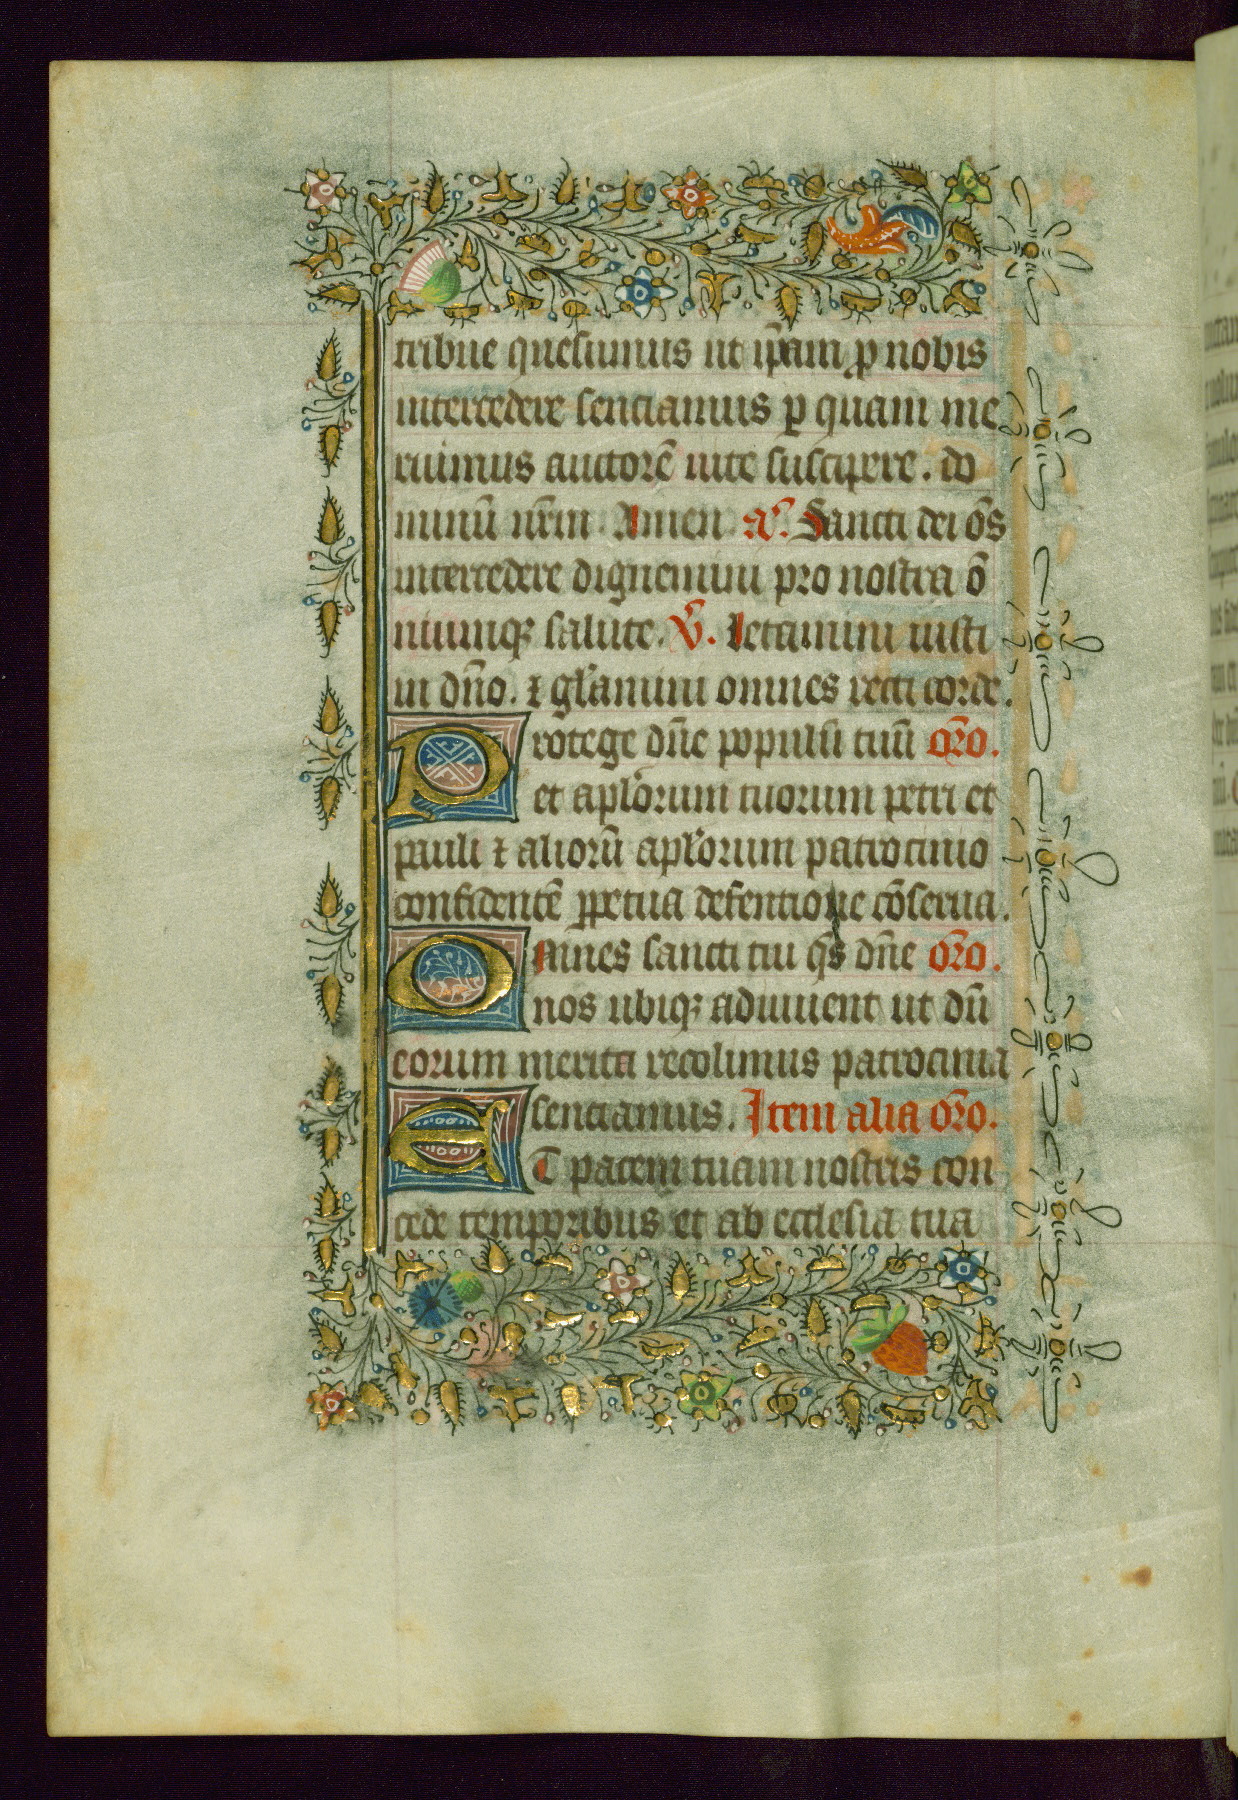 tribue quesumus ut ip̄am p̱ nobis
intercedere sentiamus ꝑ quam me
ruimus auctorē uite suscipere. do
minū nr̄m. Amen. aͣ. Sancti dei oēs
intercedere dignemini pro nostra o
niumqꝫ salute. V̄. Letamini iusti
in dn̄o. ⁊ gl̄amini omnes recti corde.
Protege dn̄e populū tuū or̄o.
et apl̄orum tuorum petri et
pauli ⁊ aliorū apl̄orum patrocinio
confidentē ꝑpetua defentione cōserua.
Omnes sancti tui qs̄ dn̄e or̄o.
nos ubiqꝫ adiuuent ut dū
eorum merita recolimus patrocinia
sentiamus. Item alia or̄o.
ET pacem tuam nostris con
cede temporibus et ab ecclesia tua